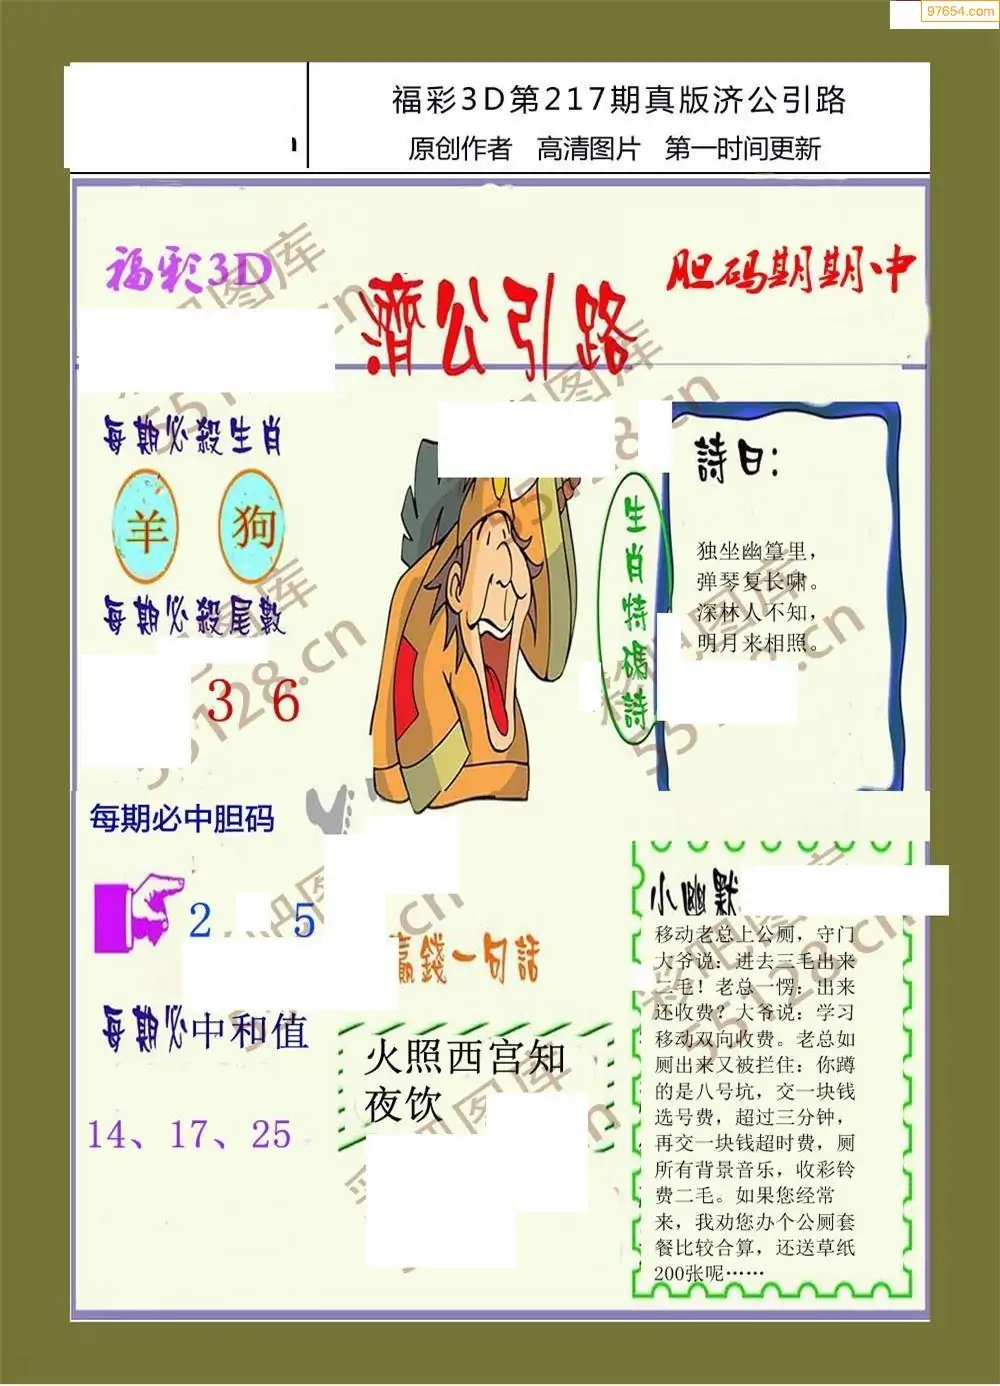 97654.com
福彩3D第217期真版济公引路
原创作者 高清图片 第一时间更新
福彩3D
胆码期期中
濟公引路
每期必殺生肖
羊 狗
每期必殺尾數
3 6
生肖特碼詩
詩曰：
独坐幽篁里，
弹琴复长啸。
深林人不知，
明月来相照。
每期必中胆码
2 5
每期必中和值
14、17、25
赢錢一句話
火照西宫知
夜饮
小幽默
移动老总上公厕，守门
大爷说：进去三毛出来
二毛！老总一愣：出来
还收费？大爷说：学习
移动双向收费。老总如
厕出来又被拦住：你蹲
的是八号坑，交一块钱
选号费，超过三分钟，
再交一块钱超时费，厕
所有背景音乐，收彩铃
费二毛。如果您经常
来，我劝您办个公厕套
餐比较合算，还送草纸
200张呢……
55128.cn